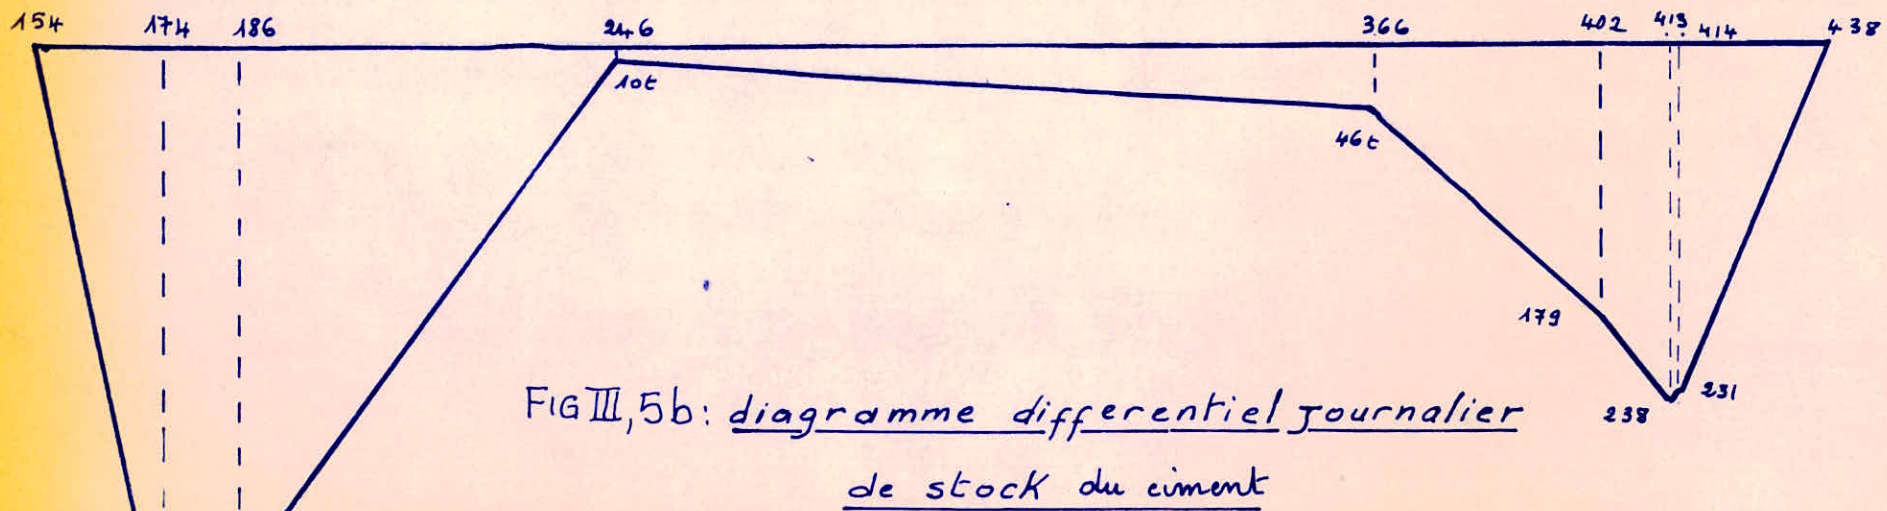 154 174 186 246 366 402 413 414 438
10t
46t
179
FIG III, 5b: diagramme differentiel journalier
238 231
de stock du ciment